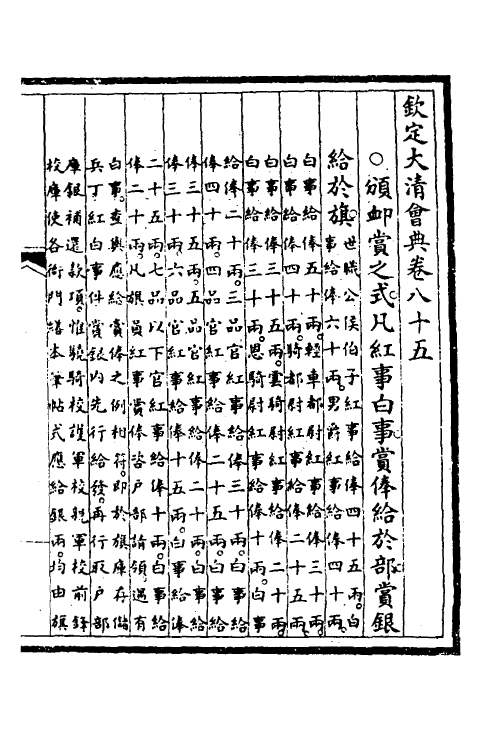 欽定大清會典卷八十五
○頒卹賞之式凡紅事白事賞俸給於部賞銀
給於旗世職公侯伯子紅事給俸四十五兩白
事給俸六十兩男爵紅事給俸四十兩
白事給俸五十兩輕車都尉紅事給俸三十兩
白事給俸四十兩騎都尉紅事給俸二十五兩
白事給俸三十五兩雲騎尉紅事給俸二十兩
白事給俸三十兩恩騎尉紅事給俸十兩白事
給俸二十兩三品官紅事給俸三十兩白事給
俸四十兩四品官紅事給俸二十五兩白事給
俸三十五兩五品官紅事給俸二十兩白事給
俸三十兩六品官紅事給俸十五兩白事給俸
二十五兩七品以下官紅事給俸十兩白事給
俸二十兩凡旗員紅事賞俸咨戶部請領遇有
白事查與應給賞俸之例相符即於旗庫存借
兵丁紅白事件賞銀內先行給發再行取戶部
庫銀補還款項惟驍騎校護軍校親軍校前鋒
校庫使各衙門繕本筆帖式應給銀兩均由旗